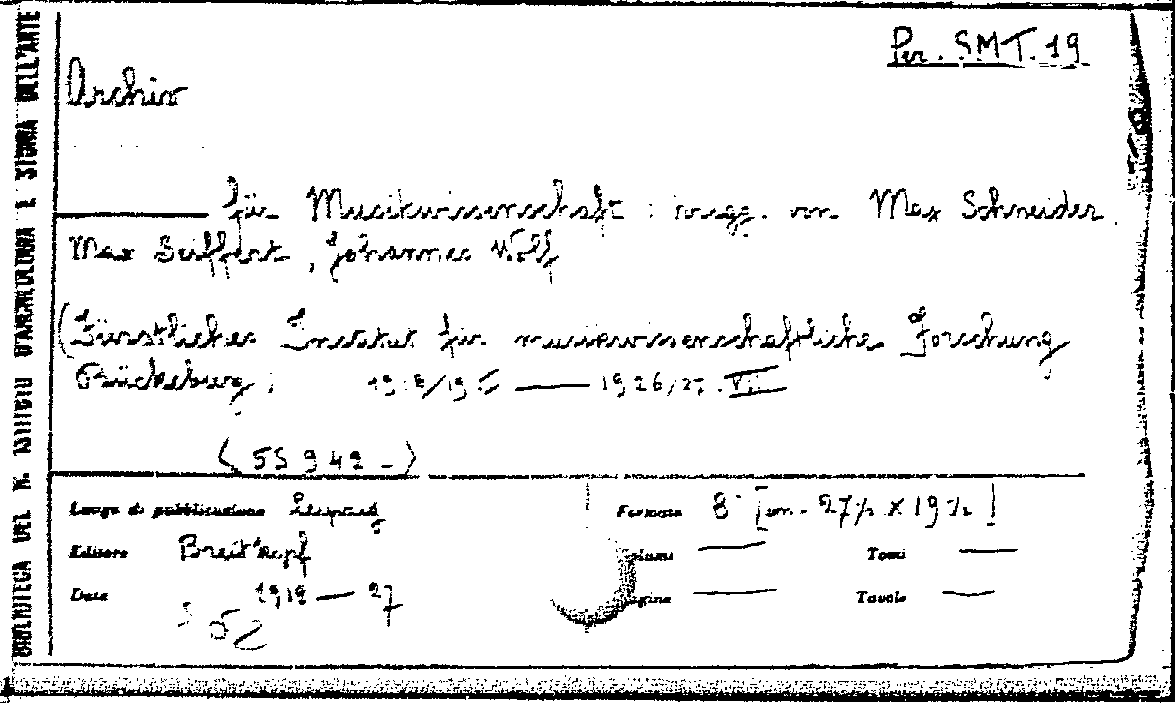 Per. SMT. 19
Archiv
für Musikwissenschaft : hrsgg. von Max Schneider,
Max Seiffert, Johannes Wolf
(Fürstliches Institut für musikwissenschaftliche Forschung
Bückeburg; 1918/19 — 1926/27. VIII
(55942-)
Luogo di pubblicazione Leipzig Formato 8° [cm. 27½ x 19½]
Editore Breitkopf Volumi — Tomi —
Data 1918 — 27 Pagine — Tavole —
BIBLIOTECA DEL R. ISTITUTO D'ARCHEOLOGIA E STORIA DELL'ARTE